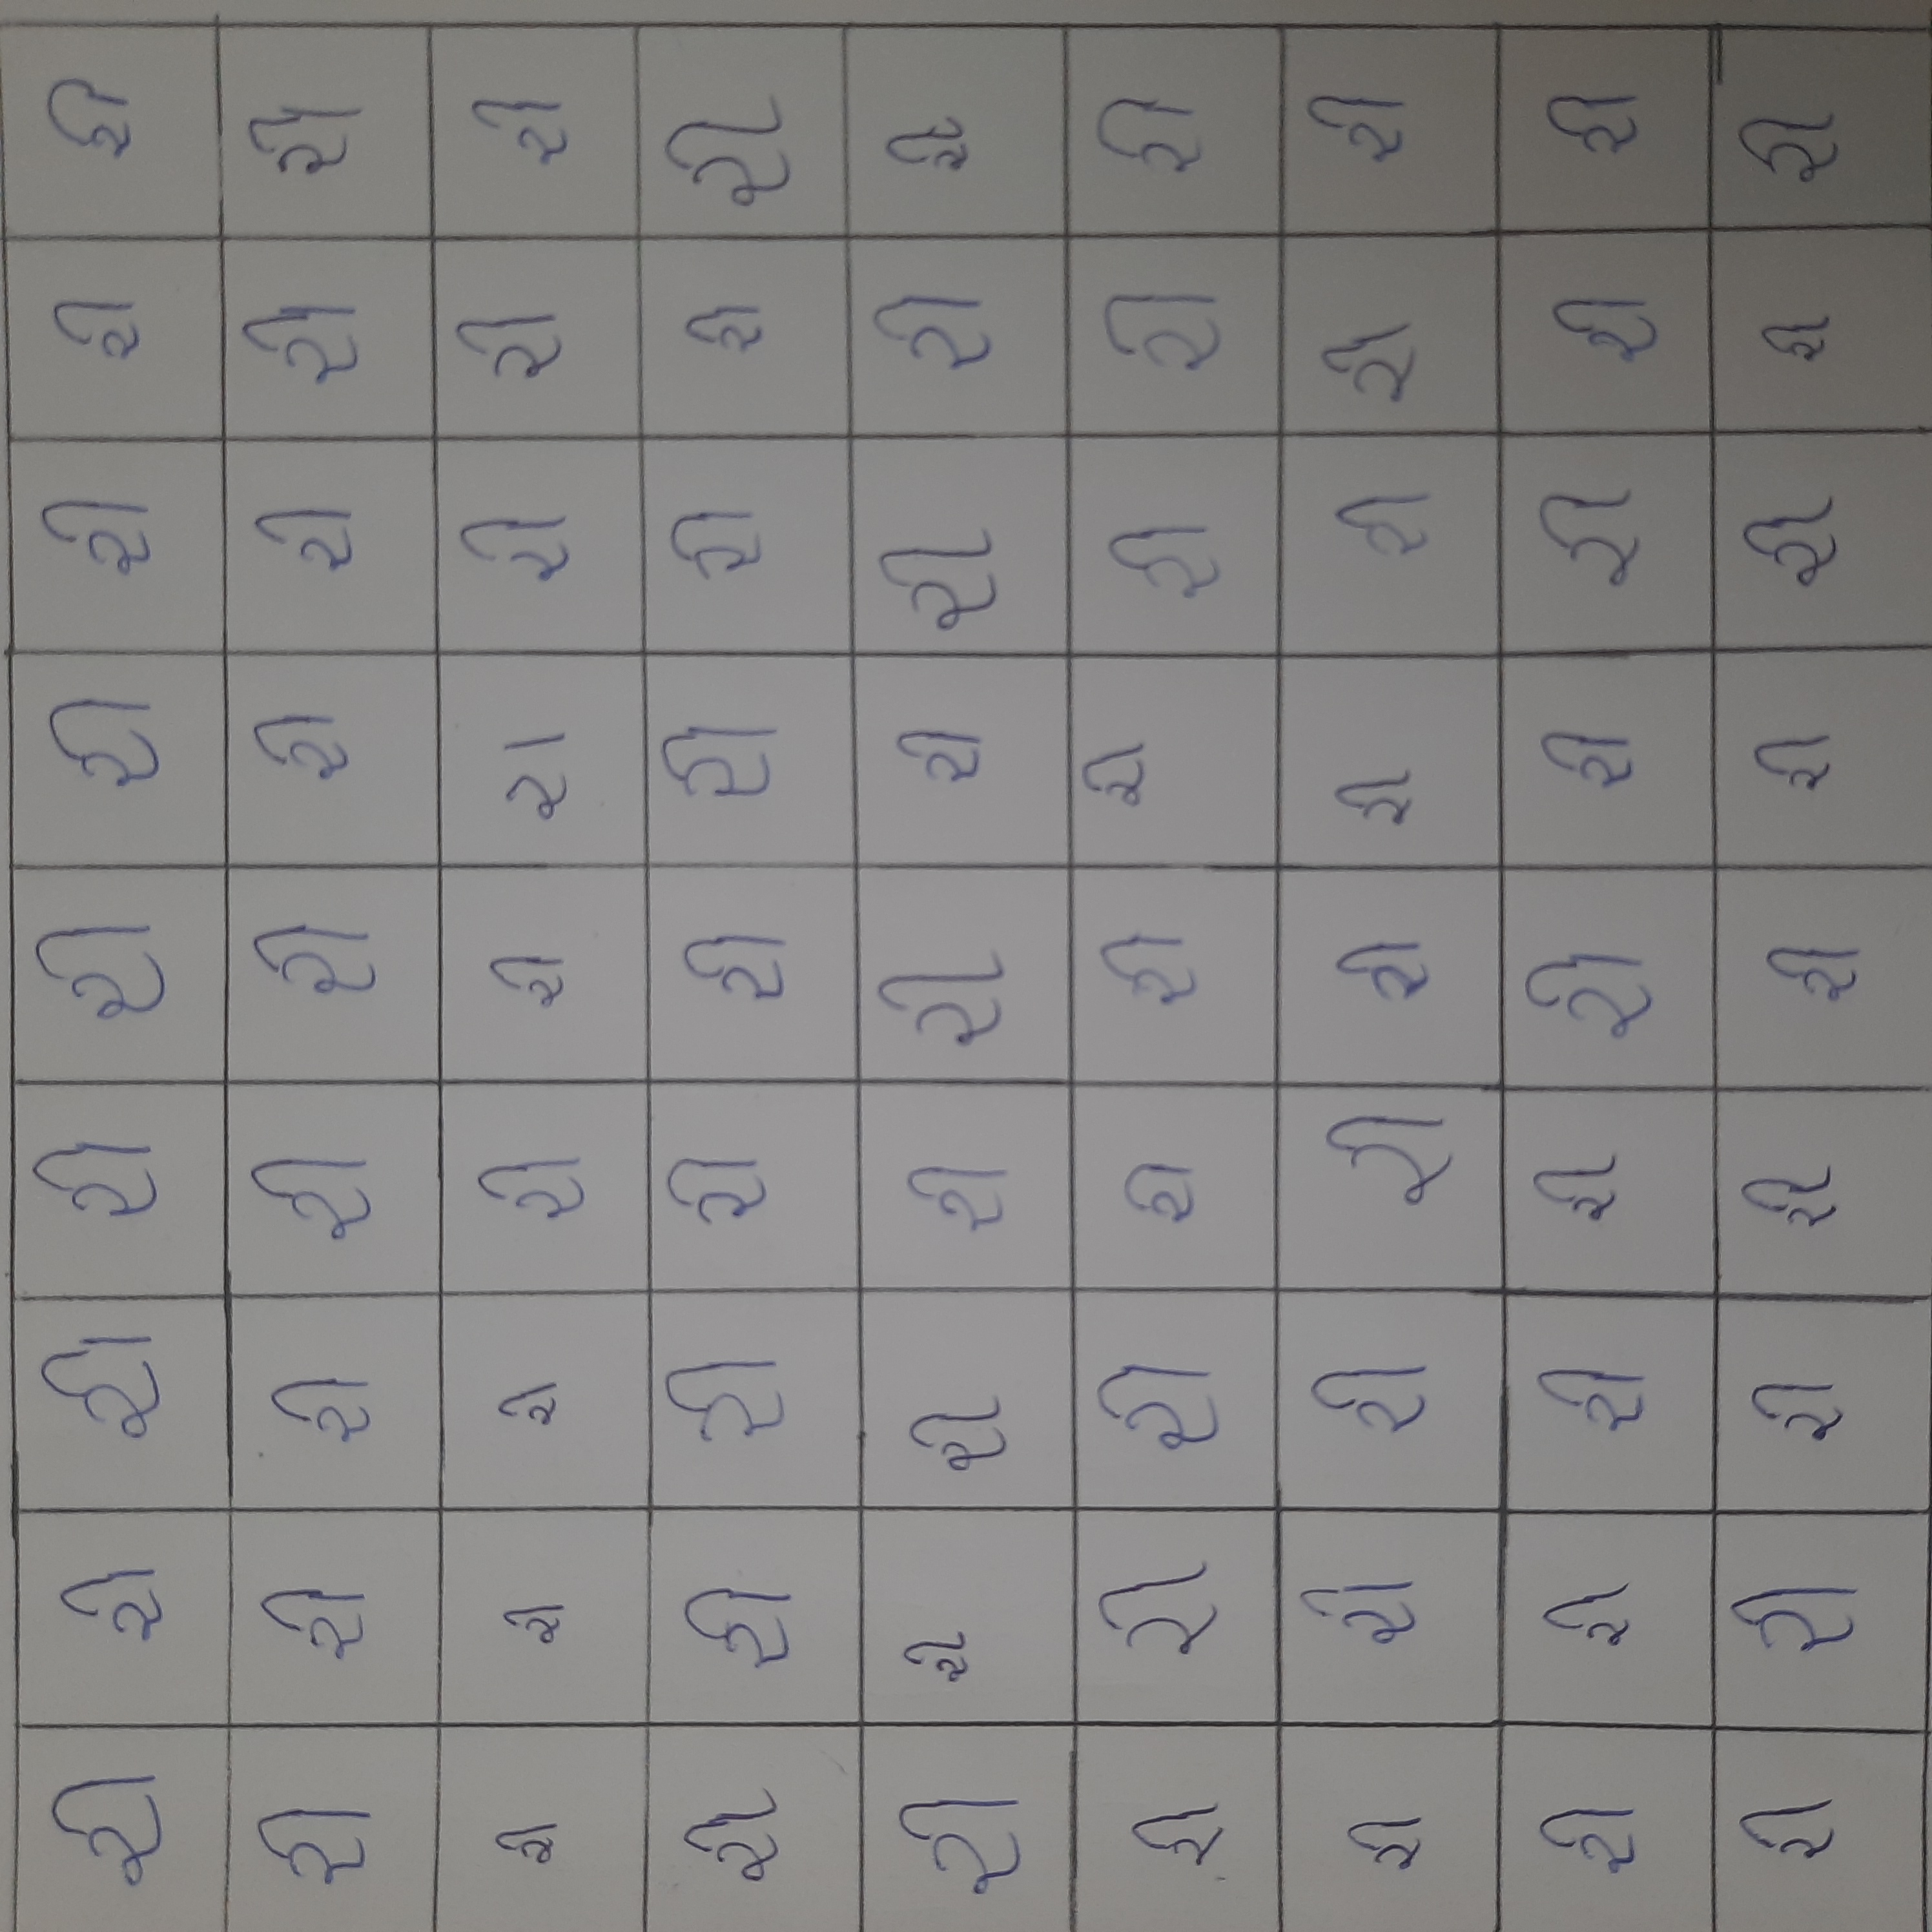 રી રી રી રી રી રી રી રી રી
રી રી રી રી રી રી રી રી રી
રી રી રી રી રી રા રી રી રી
રી રી રી રી રી રી રી રી રી
રી રી રી રી રી રી રી રી રી
રી રી રી રી રી રી રી રી રી
રી રી રી રી રી રી રી રી રી
રી રી રી રી રી રી રી રી રી
રી રી રી રી રી રી રી રી રી